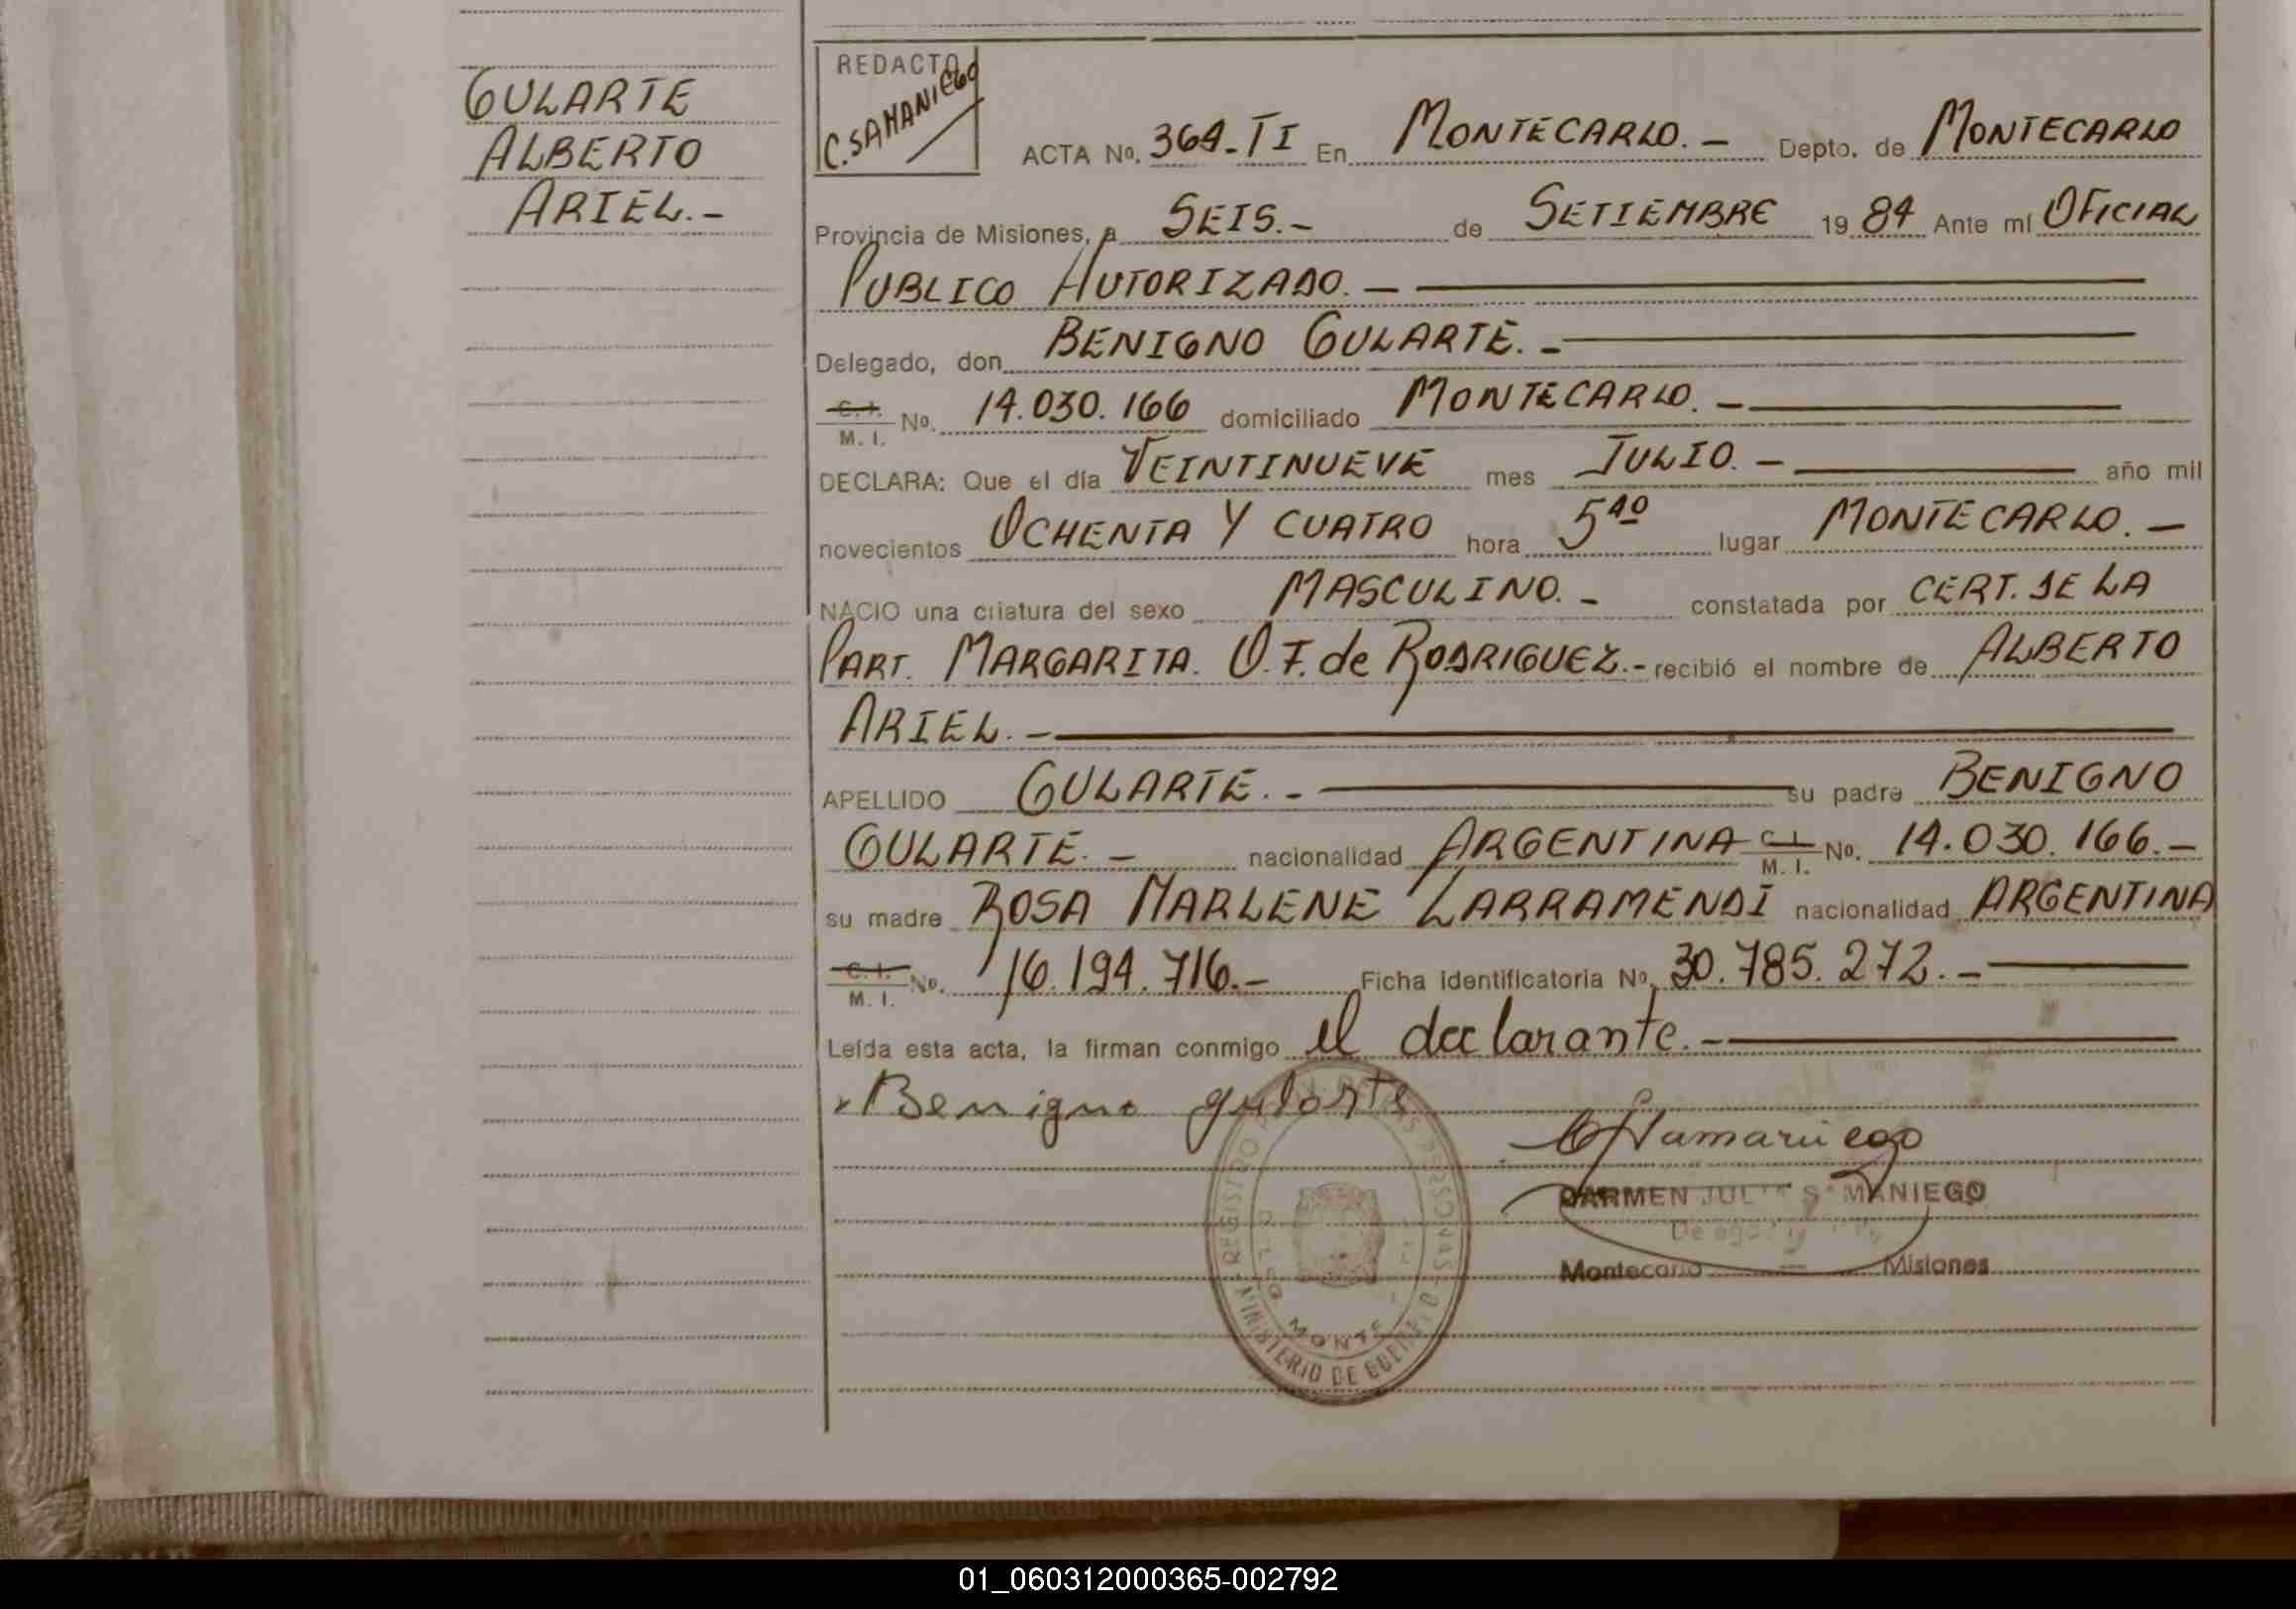 GULARTE
ALBERTO
ARIEL.-
REDACTO
C. SAMANIEGO
ACTA No. 364-TI En MONTECARLO.- Depto. de MONTECARLO
Provincia de Misiones, a SEIS.- de SETIEMBRE 1984 Ante mí OFICIAL
PUBLICO AUTORIZADO.-
Delegado, don BENIGNO GULARTE.-
C. I. / M. I. No. 14.030.166 domiciliado MONTECARLO.-
DECLARA: Que el día VEINTINUEVE mes JULIO.- año mil
novecientos OCHENTA Y CUATRO hora 5 40 lugar MONTECARLO.-
NACIO una criatura del sexo MASCULINO.- constatada por CERT. DE LA
PART. MARGARITA. O. F. de RODRIGUEZ.- recibió el nombre de ALBERTO
ARIEL.-
APELLIDO GULARTE.- su padre BENIGNO
GULARTE.- nacionalidad ARGENTINA C. I. / M. I. No. 14.030.166.-
su madre ROSA MARLENE LARRAMENDI nacionalidad ARGENTINA
C. I. / M. I. No. 16.194.716.- Ficha identificatoria No. 30.785.272.-
Leída esta acta, la firman conmigo el declarante.-
Benigno gularte
CSamaniego
CARMEN SAMANIEGO
Montecarlo Misiones
REGISTRO PERSONAS
MINISTERIO DE
MONTE
01_060312000365-002792